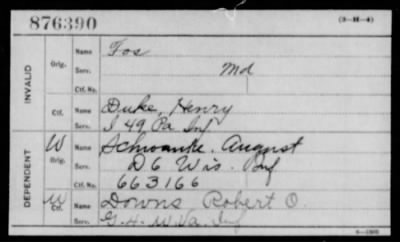 876390 (3-H-4)
INVALID
Orig. Name Fos
Serv. Md
Ctf. No.
Ctf. Name Duke, Henry
Serv. I 49 Pa Inf
DEPENDENT
W Orig. Name Schwanke, August
Serv. D 6 Wis. Inf
Ctf. No. 663166
W Ctf. Name Downs Robert O.
Serv. G. 4. W. Va. Inf